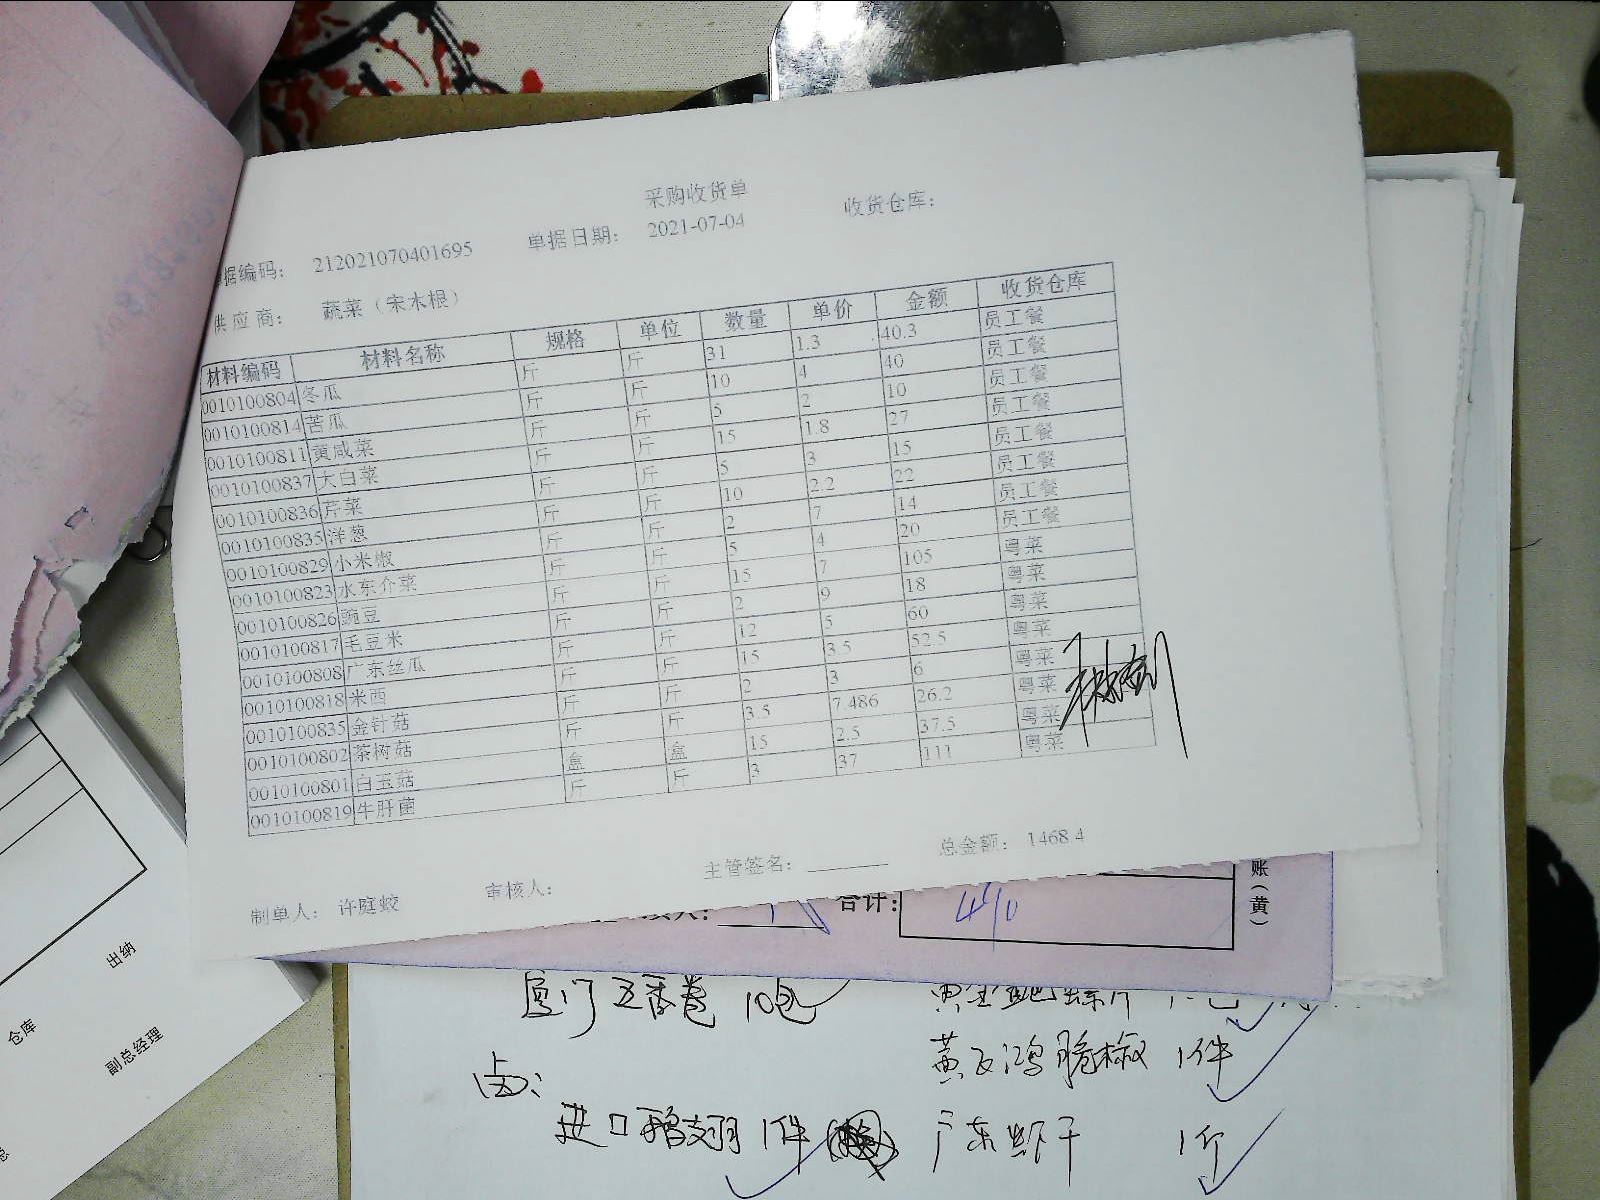 采购收货单
据编码: 212021070401695 单据日期: 2021-07-04 收货仓库:
供应商: 蔬菜（宋木根）
材料编码 材料名称 规格 单位 数量 单价 金额 收货仓库
0010100804 冬瓜 斤 斤 31 1.3 40.3 员工餐
0010100814 苦瓜 斤 斤 10 4 40 员工餐
0010100811 黄咸菜 斤 斤 5 2 10 员工餐
0010100837 大白菜 斤 斤 15 1.8 27 员工餐
0010100836 芹菜 斤 斤 5 3 15 员工餐
0010100835 洋葱 斤 斤 10 2.2 22 员工餐
0010100829 小米椒 斤 斤 2 7 14 员工餐
0010100823 水东介菜 斤 斤 5 4 20 员工餐
0010100826 豌豆 斤 斤 15 7 105 粤菜
0010100817 毛豆米 斤 斤 2 9 18 粤菜
0010100808 广东丝瓜 斤 斤 12 5 60 粤菜
0010100818 米西 斤 斤 15 3.5 52.5 粤菜
0010100835 金针菇 斤 斤 2 3 6 粤菜
0010100802 茶树菇 斤 斤 3.5 7.486 26.2 粤菜
0010100801 白玉菇 盒 盒 15 2.5 37.5 粤菜
0010100819 牛肝菌 斤 斤 3 37 111 粤菜
制单人: 许庭蛟 审核人: 主管签名: 总金额: 1468.4
合计:
账(黄)
出纳
仓库
副总经理
厦门五香卷 10包
黄飞鸿脆椒 1件
卤:
进口鸭翅 1件
广东虾干 1斤